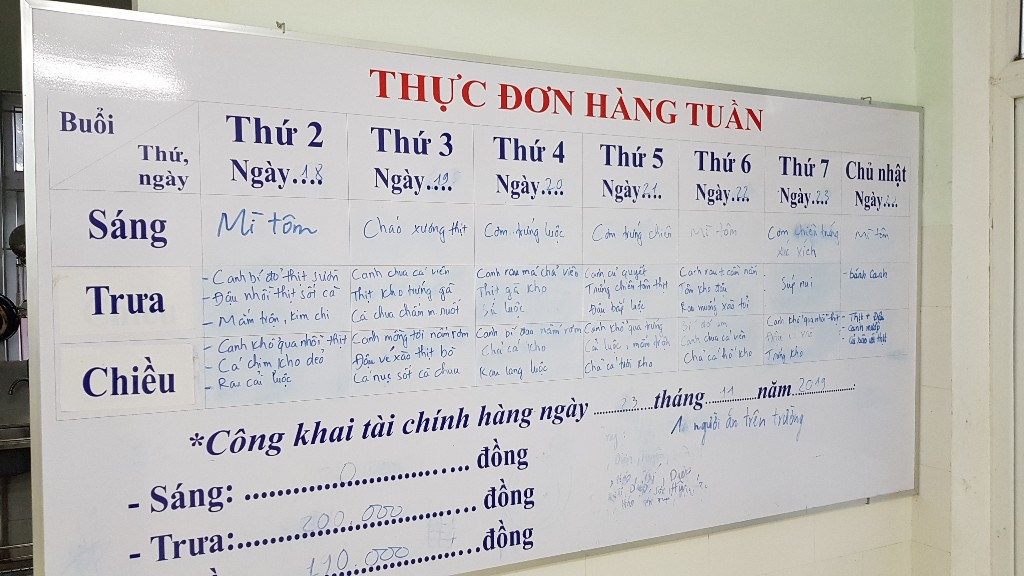 THỰC ĐƠN HÀNG TUẦN
Buổi
Thứ, ngày
Thứ 2
Ngày 18
Thứ 3
Ngày 19
Thứ 4
Ngày 20
Thứ 5
Ngày 21
Thứ 6
Ngày 22
Thứ 7
Ngày 23
Chủ nhật
Ngày
Sáng
Mì tôm
Cháo xương thịt
Cơm trứng luộc
Cơm trứng chiên
Mì tôm
Cơm chiên trứng
xúc xích
Mì tôm
Trưa
- Canh bí đỏ thịt sườn
- Đậu nhồi thịt sốt cà
- Mắm trộn, kim chi
Canh chua cá viên
Thịt kho trứng gà
Cà chua chấm m ruốt
Canh rau má chả viên
Thịt gà kho
luộc
Trứng chiên tôm thịt
Đậu bắp luộc
Rau muống xào tỏi
Súp nui
- bánh canh
Chiều
- Canh khổ qua nhồi thịt
- Cá chim kho dẻo
- Rau cải luộc
Canh mồng tơi nấm rơm
Đậu ve xào thịt bò
Cá nục sốt cà chua
Canh bí đao nấm rơm
Chả cá kho
Rau lang luộc
Canh khổ qua trứng
Cá luộc, mắm
Chả cá kho
Canh chua cá viên
Chả cá kho
Canh khổ qua nhồi thịt
Trứng kho
- Thịt + Đậu
*Công khai tài chính hàng ngày 23 tháng 11 năm 2019
người ăn trên trường
- Sáng: 0 đồng
- Trưa: 200.000 đồng
110.000 đồng